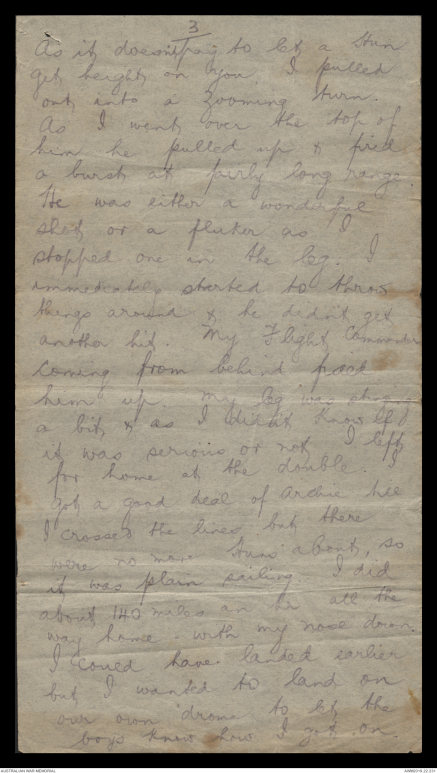 3
As it doesn't pay to let a Hun
get height on you. I pulled
out into a zooming turn.
As I went over the top of
him he pulled up & fired
a burst at fairly long range.
He was either a wonderful
shot or a fluker as I
stopped one in the leg. I
immediately started to throw
things around & he didn't get
another hit. My Flight Commander
coming from behind
him up. My leg was
a bit & as I didn't know if
it was serious or not, I left
for home at the double. I
got a good deal of Archie till
I crossed the lines, but there
were no more Huns about, so
it was plain sailing. I did
about 140 miles an hr all the
way home - with my nose down.
I could have landed earlier
but I wanted to land on
our own drome to let the
boys know how I got on.
AUSTRALIAN WAR MEMORIAL